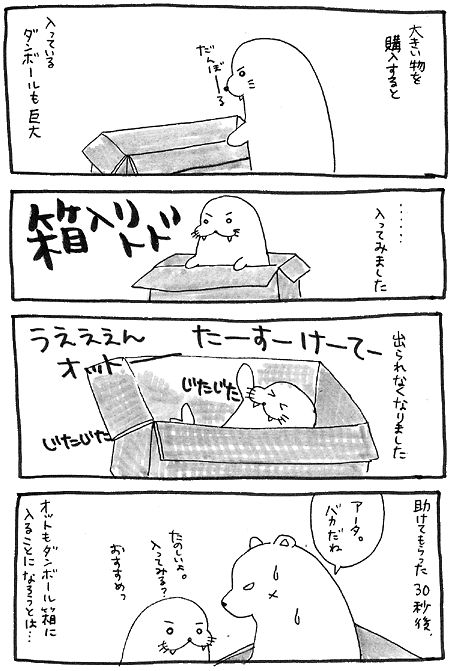 大きい物を
購入すると
だんぼーる
入っている
ダンボールも巨大
……
入ってみました
箱入りトド
出られなくなりました
たーすーけーてー
うえええん
オットーーー
じたじた
じたじた
助けてもらった30秒後、
アータ。
バカだね
たのしいよ。
入ってみる?
おすすめっ
オットもダンボール箱に
入ることになろうとは…